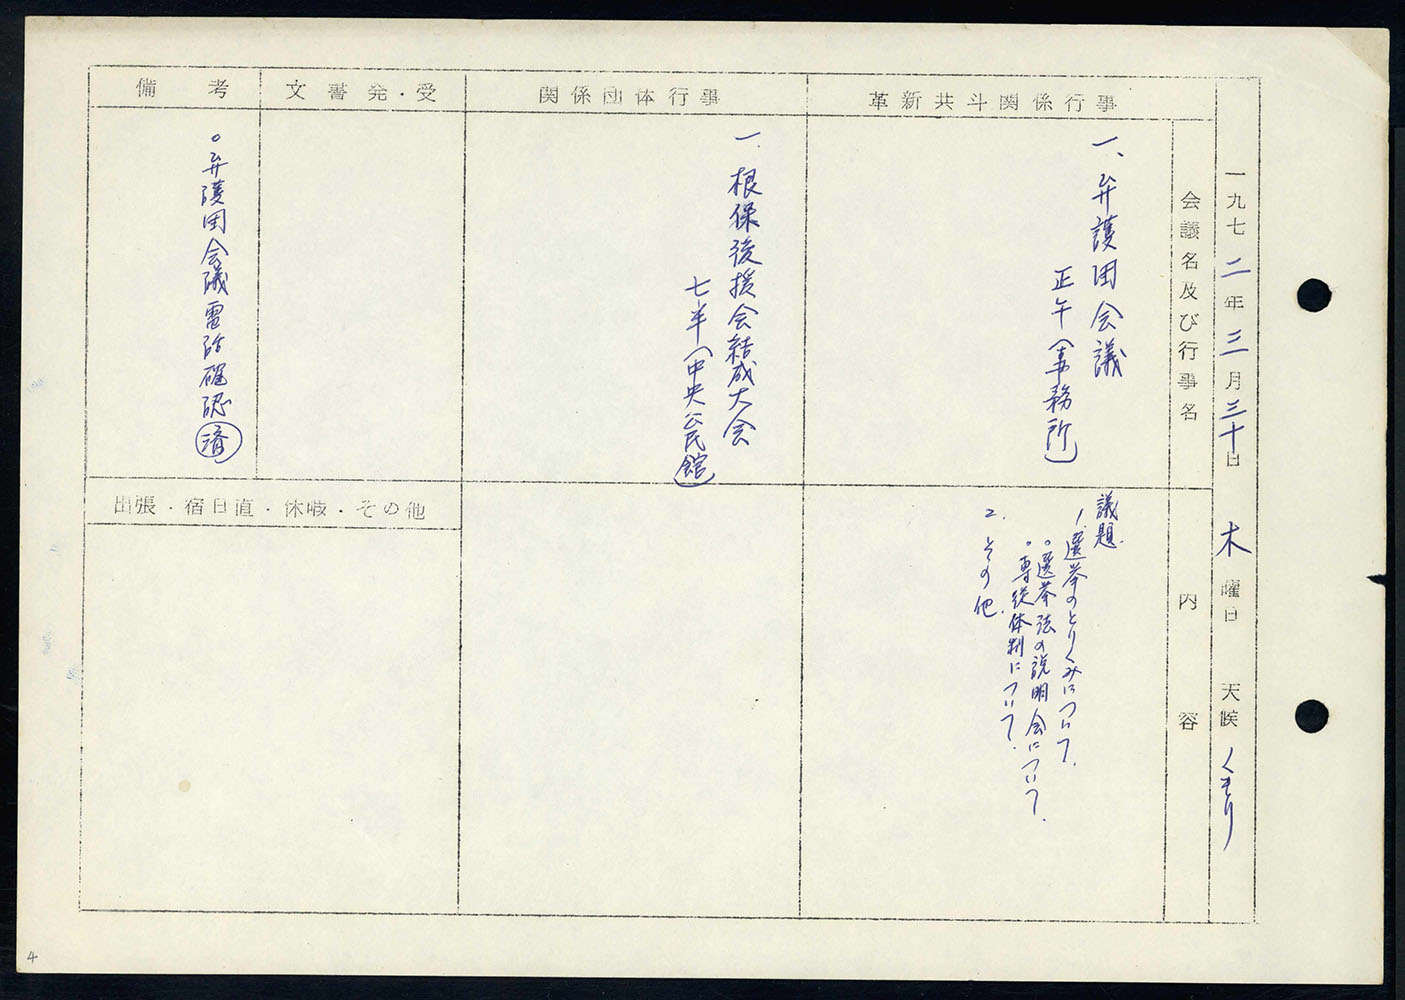 一九七二年三月三十日 木曜日 天候 くもり
会議名及び行事名
内容
革新共斗関係行事
一、弁護団会議
正午(事務所)
議題.
1.選挙のとりくみについて.
○選挙法の説明会について.
○専従体制について.
2.その他.
関係団体行事
一.根保後援会結成大会
七半(中央公民館)
文書発・受
備考
○弁護団会議電話確認済
出張・宿日直・休暇・その他
4